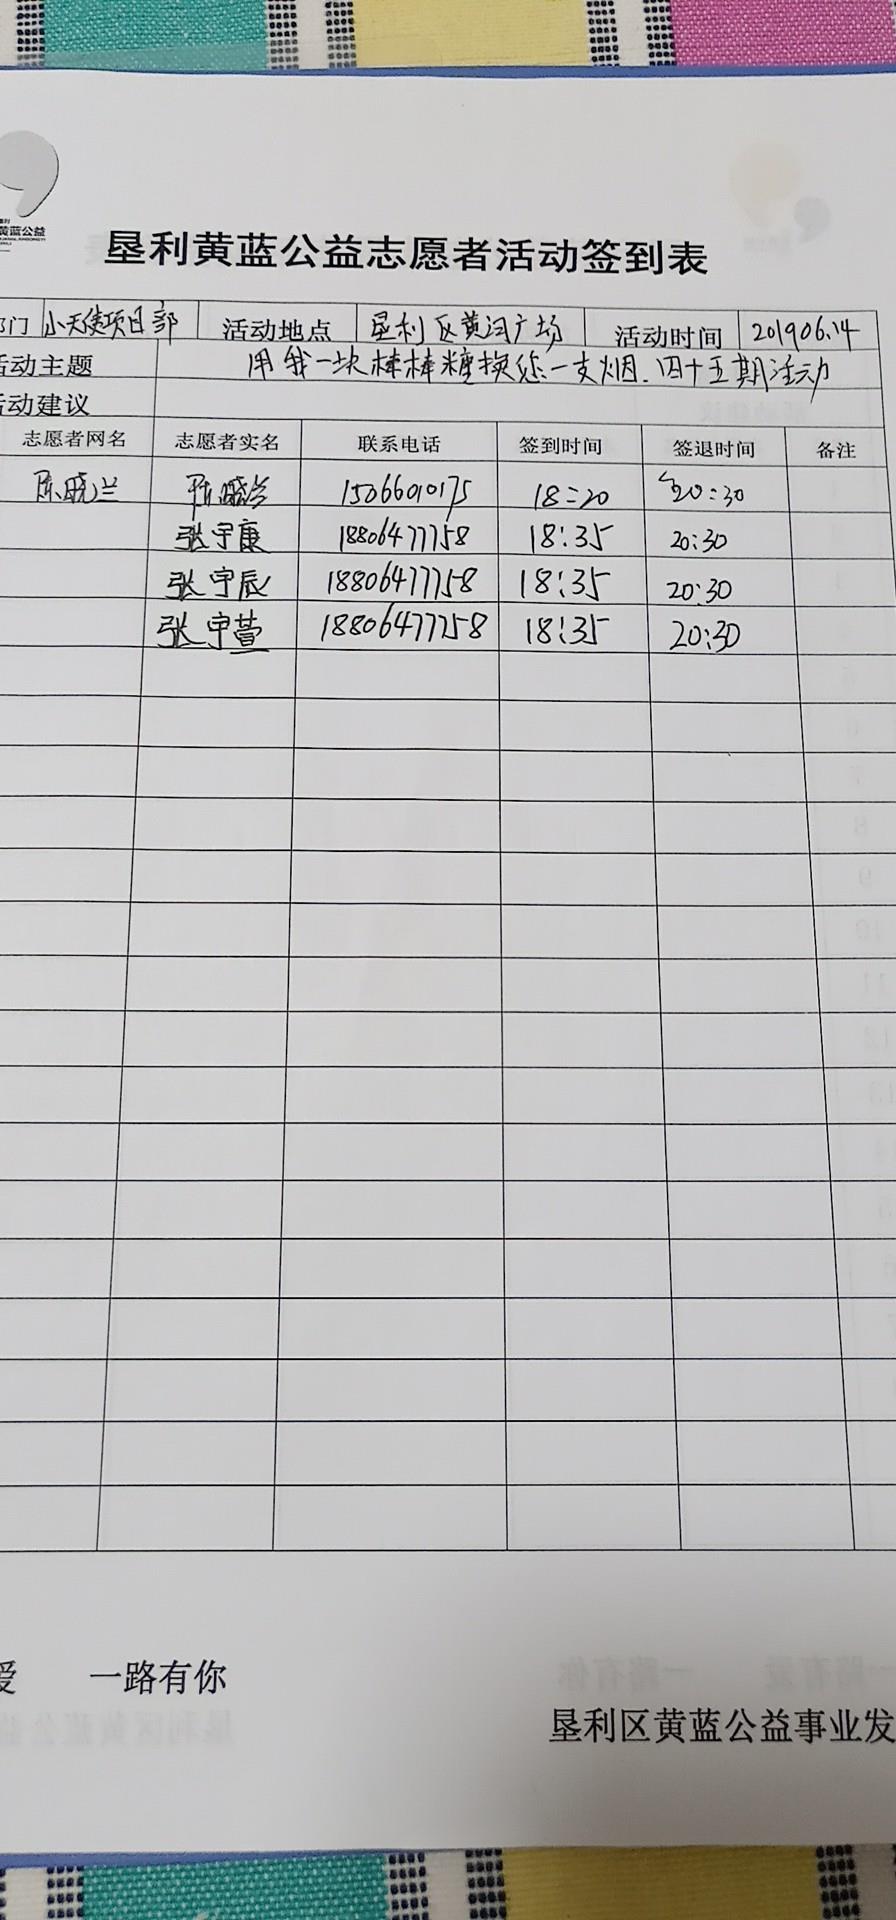 黄蓝公益
垦利黄蓝公益志愿者活动签到表
部门 小天使项目部 活动地点 垦利区黄河广场 活动时间 2019.06.14
活动主题 用我一块棒棒糖换您一支烟.四十五期活动
活动建议
志愿者网名 志愿者实名 联系电话 签到时间 签退时间 备注
陈晓兰 陈晓兰 15066010175 18:20 20:30
张宇康 18806477758 18:35 20:30
张宇辰 18806477758 18:35 20:30
张宇萱 18806477758 18:35 20:30
爱 一路有你
垦利区黄蓝公益事业发